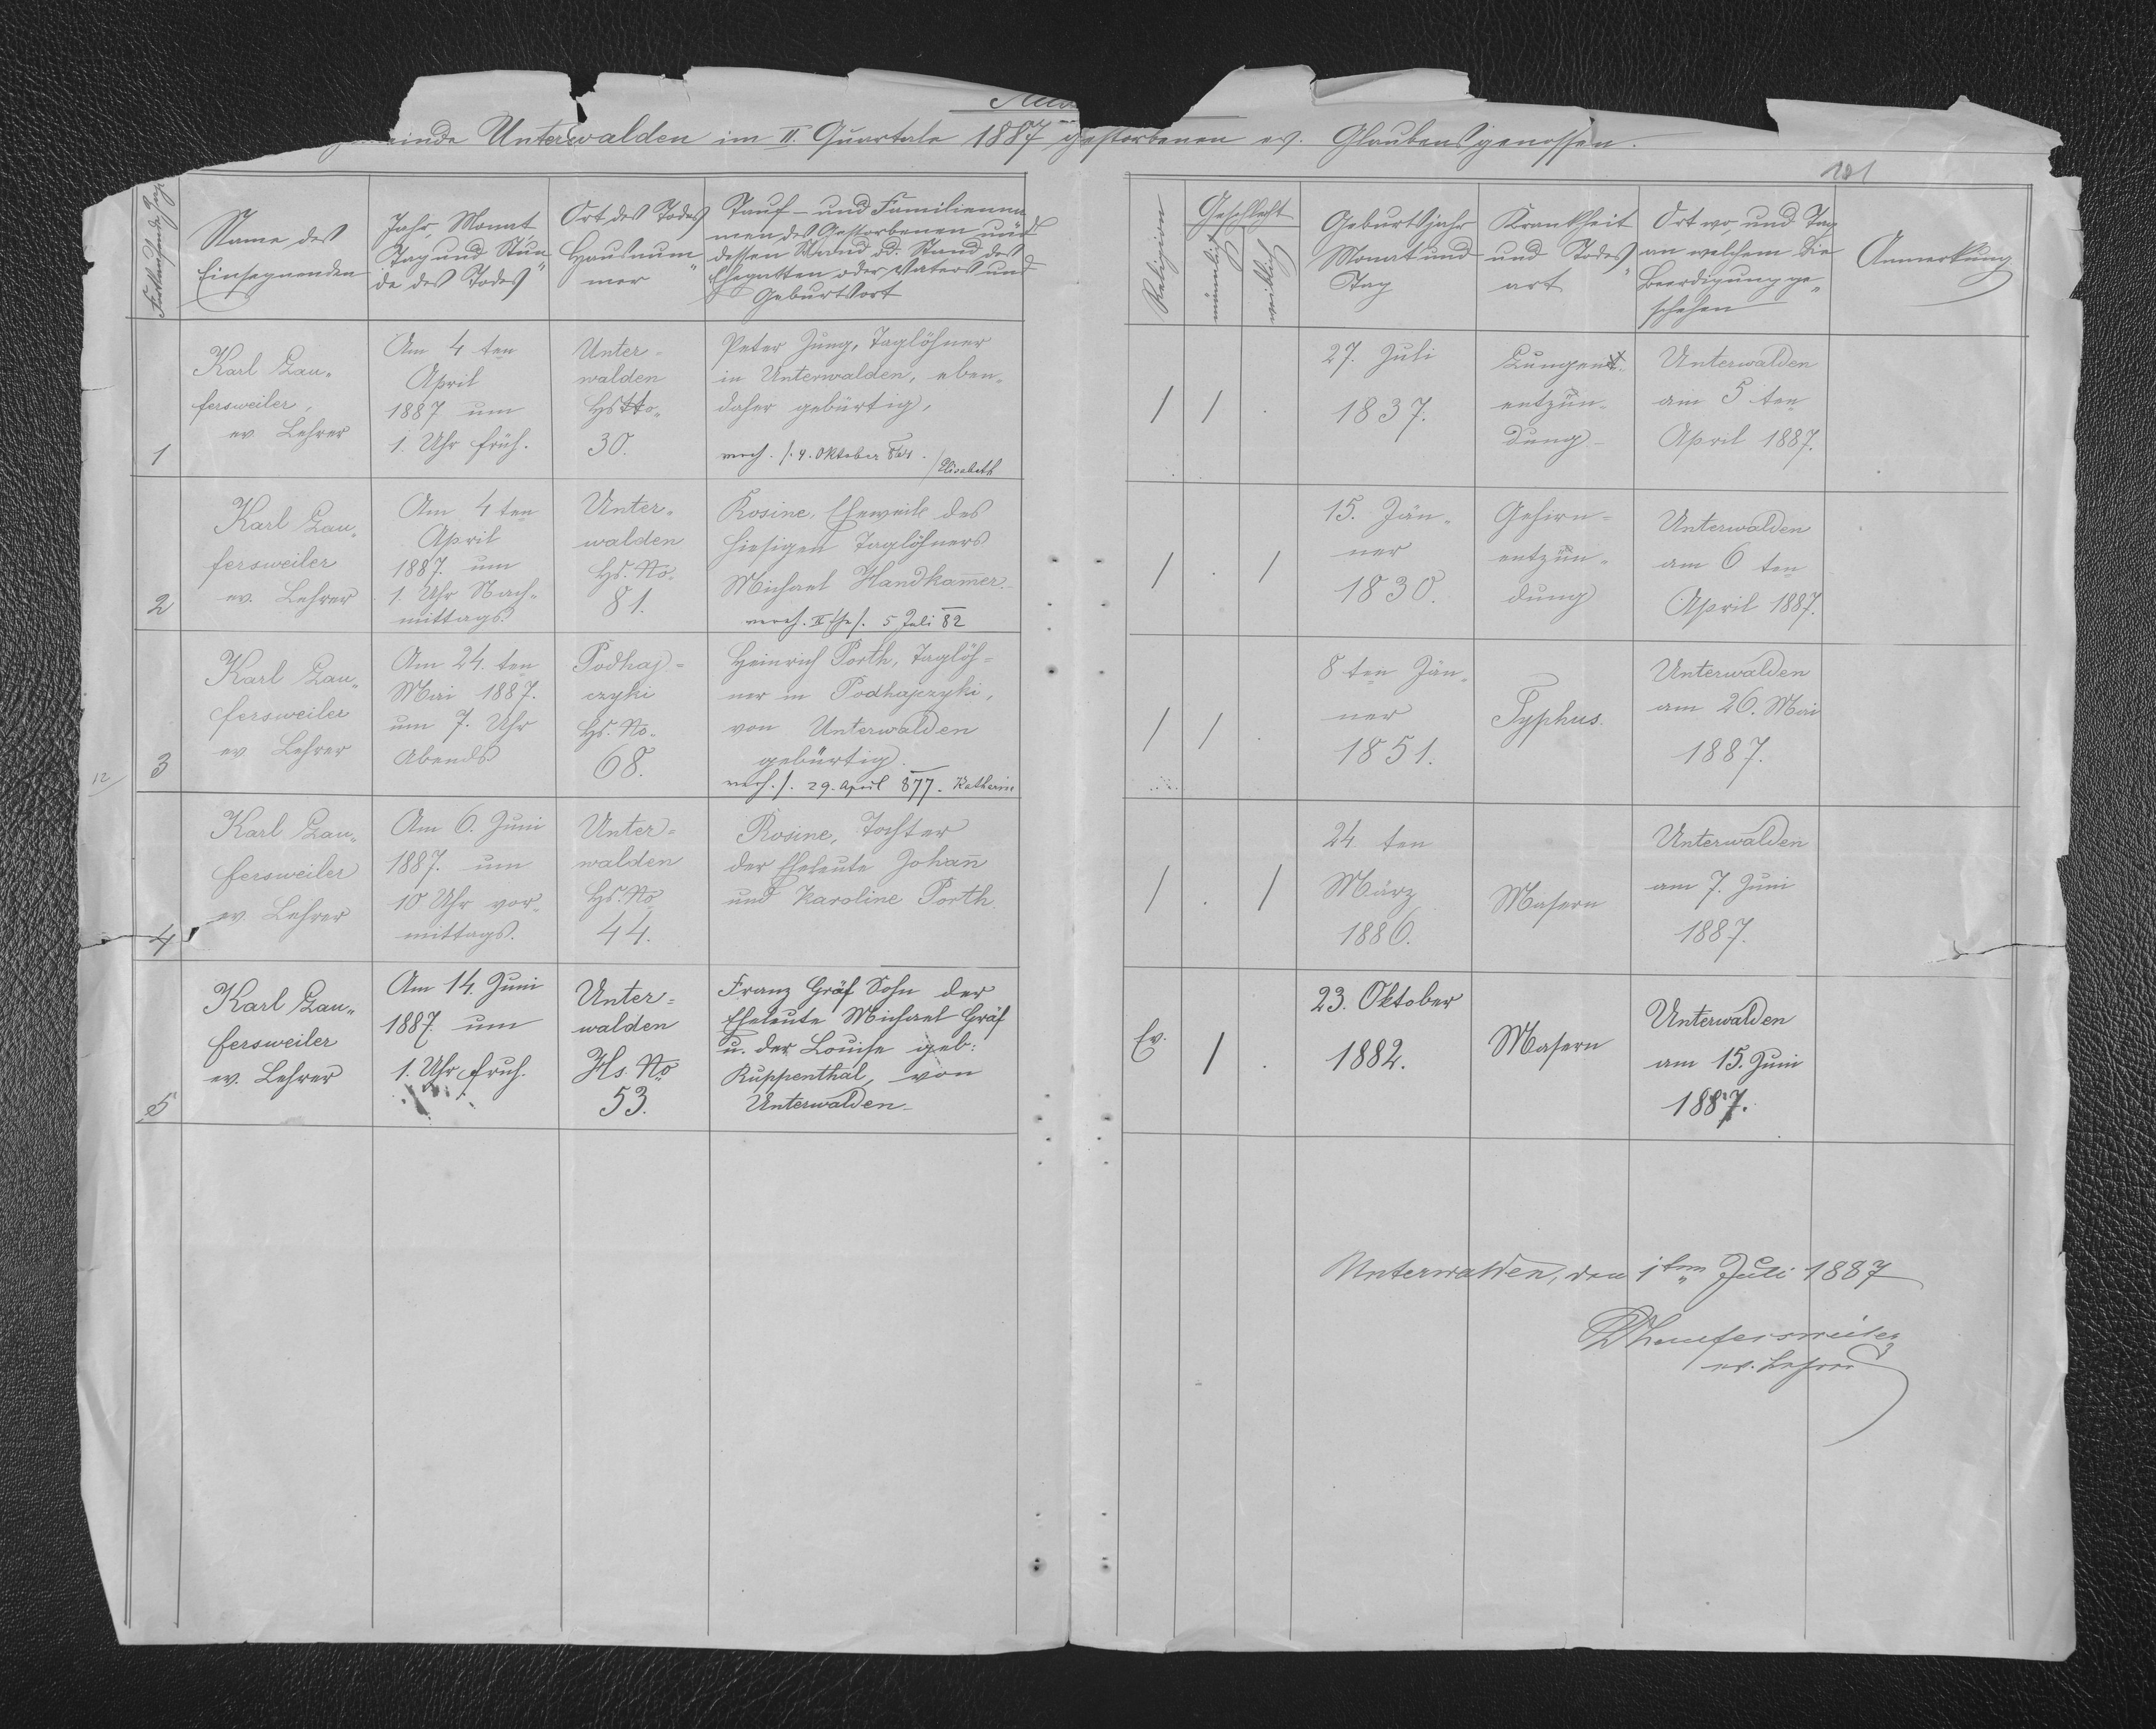 Unterwalden im II. Quartale 1887 gestorbenen ev. Glaubensgenossen.
101
Name des
Einsegnenden
Jahr, Monat
Tag und Stun
de des Todes
Ort des Todes
Hausnum
mer
Tauf- und Familienna
men des Gestorbenen und
dessen Stand od. Stand des
Ehegatten oder Vaters und
Geburtsort
Religion
Geschlecht
männlich
weiblich
Geburtsjahr
Monat und
Tag
Krankheit
und Todes
art
Ort wo, und Tag
an welchem die
Beerdigung ge-
schehen
Anmerkung
1
Karl Lau-
fersweiler,
ev. Lehrer
Am 4 ten
April
1887 um
1. Uhr früh.
Unter-
walden
Hs No.
30.
Peter Jung, Taglöhner
in Unterwalden, eben-
daher gebürtig,
4. Oktober
Elisabeth
1
1
27. Juli
1837.
Lungen-
entzün-
dung
Unterwalden
am 5 ten
April 1887.
2
Karl Lau-
fersweiler
ev. Lehrer
Am 4 ten
April
1887. um
1. Uhr Nach-
mittags
Unter-
walden
Hs. No.
81.
Rosine, Eheweib des
hiesigen Taglöhners
Michael Handkam̄er.
II Ehe 5 Juli 82
1
1
15. Jän-
ner
1830.
Gehirn-
entzün-
dung
Unterwalden
am 6 ten
April 1887.
12
3
Karl Lau-
fersweiler
ev. Lehrer
Am 24. ten
Mai 1887.
um 7. Uhr
Abends
Podhaj-
czyki
Hs. No.
68.
Heinrich Porth, Taglöh-
ner in Podhajczyki,
von Unterwalden
gebürtig.
29. April 877. Katharin
1
1
8 ten Jän-
ner
1851.
Typhus.
Unterwalden
am 26. Mai
1887.
4
Karl Lau-
fersweiler
ev. Lehrer
Am 6. Juni
1887. um
10 Uhr vor-
mittags.
Unter-
walden
Hs. No.
44.
Rosine, Tochter
der Eheleute Johan̄
und Karoline Porth.
1
1
24 ten
März
1886.
Masern
Unterwalden
am 7. Juni
1887.
5
Karl Lau-
fersweiler
ev. Lehrer
Am 14. Juni
1887. um
1. Uhr fruh.
Unter-
walden
Hs. No
53.
Franz Gräf Sohn der
Eheleute Michael Gräf
u. der Louise geb:
Ruppenthal, von
Unterwalden
Ev.
1
23. Oktober
1882.
Masern
Unterwalden
am 15. Juni
1887.
Unterwalden, den 1ten Juli 1887
Laufersweiler
ev. Lehrer